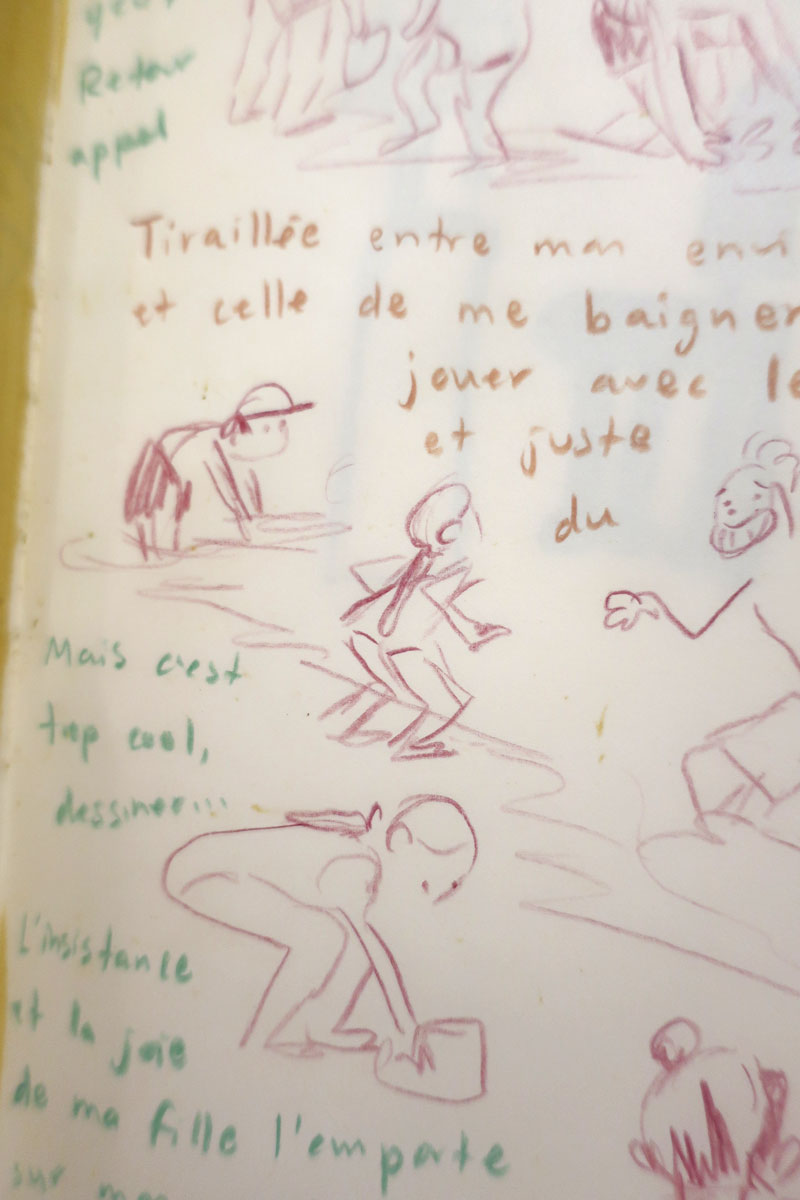 Retour
appel
Tiraillée entre mon envi
et celle de me baigner
jouer avec le
et juste
du
Mais c'est
trop cool,
dessiner...
L'insistance
et la joie
de ma fille l'emporte
sur mon